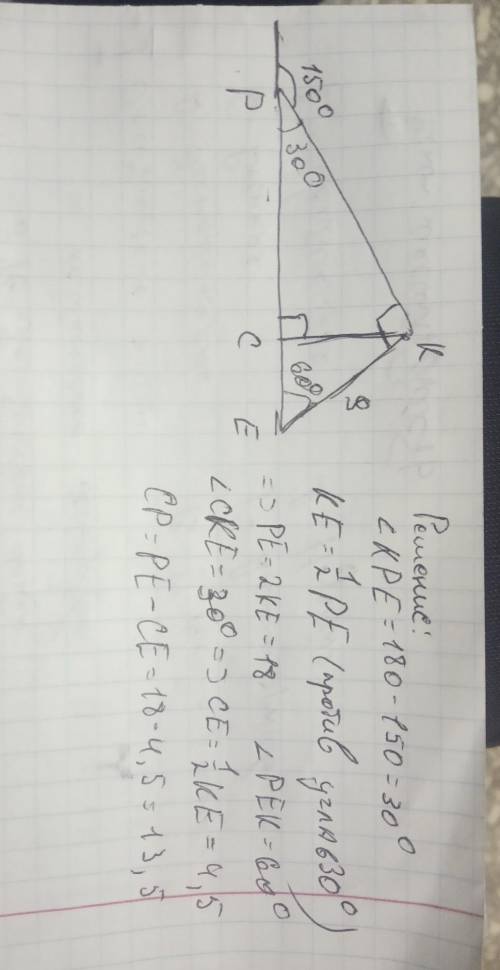 150°
P
30°
K
C
60°
9
E
Решение:
∠KPE = 180 - 150 = 30°
KE = 1/2 PE (против угла в 30°)
=> PE = 2KE = 18 ∠PEK = 60°
∠CKE = 30° => CE = 1/2 KE = 4,5
CP = PE - CE = 18 - 4,5 = 13,5